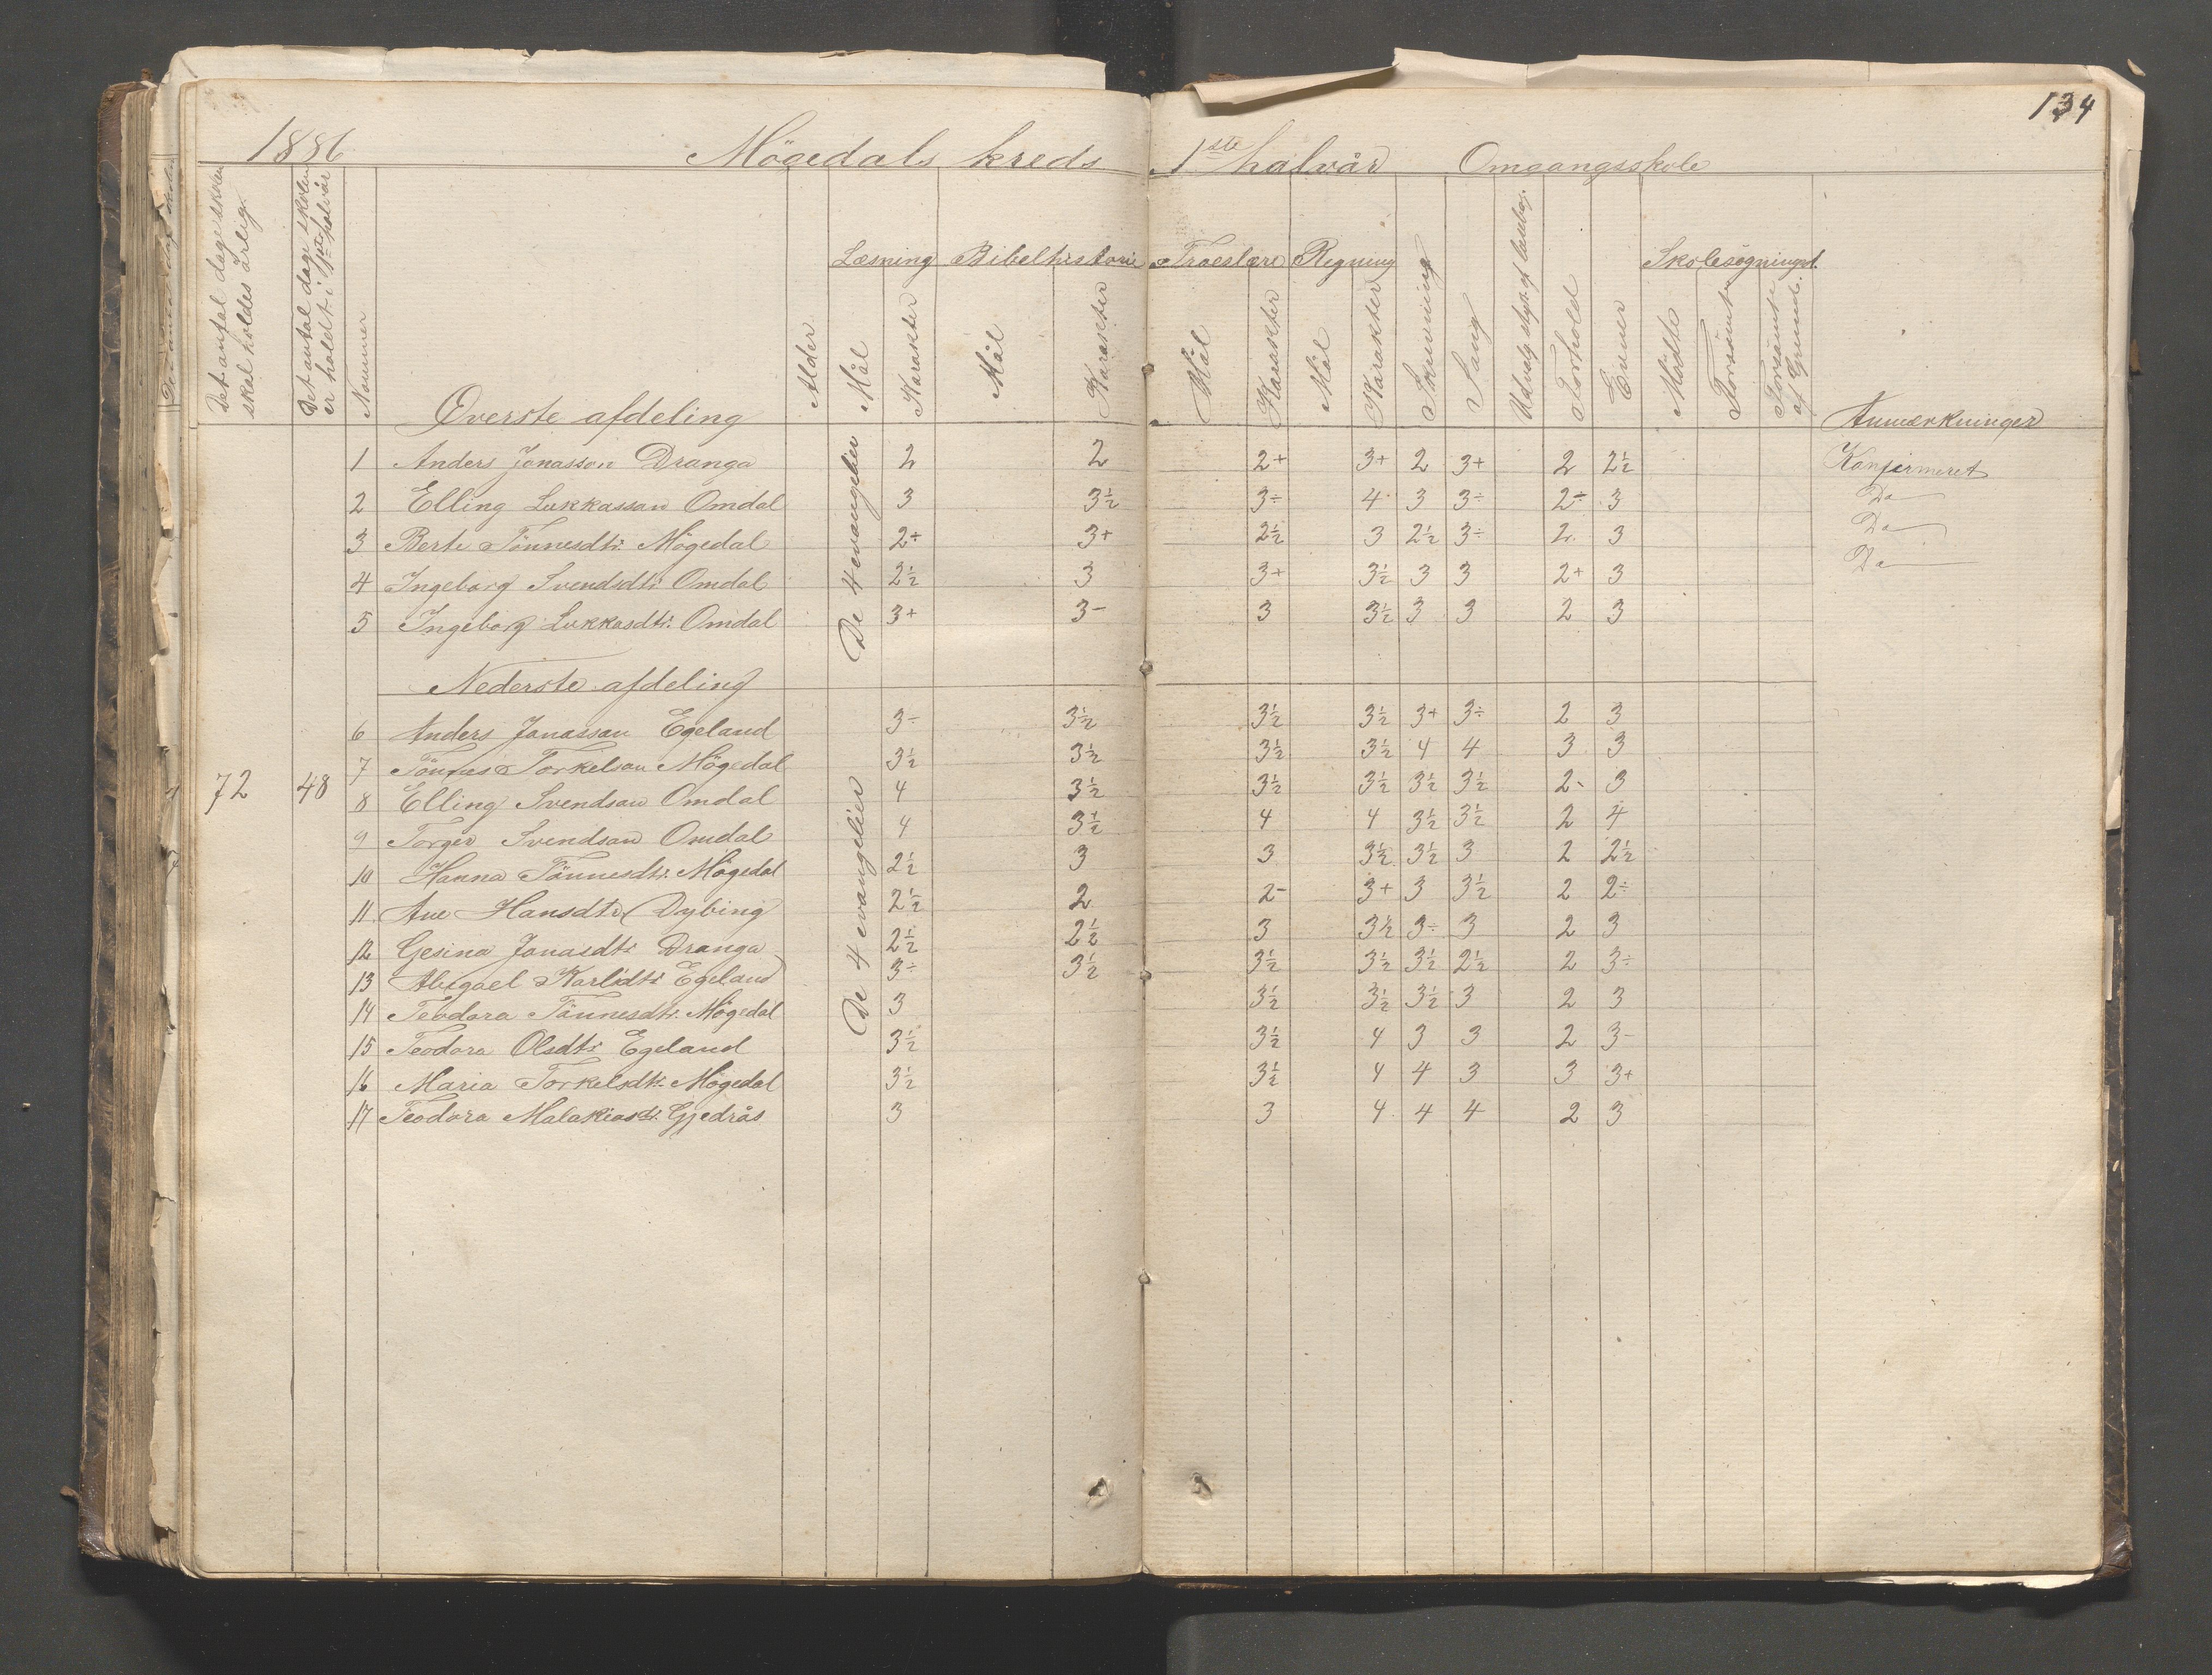 134
1886 Mögedals kreds 1ste halvår Omgangsskole
Det antal dage skolen skal holdes årlig.
Det antal dage skolen er holdt i 1ste halvår
Nummer
Overste afdeling
Alder
Læsning Bibelhistorie Troeslære Regning Skolesøgningst.
Mål Karakter Mål Karakter Mål Karakter Mål Karakter Skrivning Sang Udvalg styk. af læsebog. Forhold Evner Mödte Forsömt Forsömt af Grund. Anmærkninger
De 4 evangelier
1 Anders Jonasson Dranga 2 2 2+ 3+ 2 3+ 2 2½ Konfirmeret
2 Elling Lukkassan Omdal 3 3½ 3÷ 4 3 3÷ 2÷ 3 Do
3 Berte Tönnesdtr. Mögedal 2÷ 3+ 2½ 3 2½ 3÷ 2 3 Do
4 Ingeborg Svendsdtr. Omdal 2½ 3 3+ 3½ 3 3 2+ 3 Do
5 Ingeborg Lukkasdtr. Omdal 3+ 3- 3 3½ 3 3 2 3
Nederste afdeling
De 4 evangelier
6 Anders Jonassan Egeland 3÷ 3½ 3½ 3½ 3+ 3÷ 2 3
7 Tönnes Torkelsan Mögedal 3½ 3½ 3½ 3½ 4 4 3 3
72 48 8 Elling Svendsan Omdal 4 3½ 3½ 3½ 3½ 3½ 2- 3
9 Torger Svendsan Omdal 4 3½ 4 4 3½ 3½ 2 4
10 Hanna Tönnesdtr. Mögedal 2½ 3 3 3½ 3½ 3 2 2½
11 Ane Hansdtr Dybing 2½ 2 2- 3+ 3 3½ 2 2÷
12 Gesina Jonasdtr Dranga 2½ 2½ 3 3½ 3÷ 3 2 3
13 Abigael Karlsdtr Egeland 3÷ 3½ 3½ 3½ 3½ 2½ 2 3÷
14 Teodora Tönnesdtr. Mögedal 3 3½ 3½ 3½ 3 2 3
15 Teodora Olsdtr Egeland 3½ 3½ 4 3 3 2 3-
16 Maria Torkelsdtr. Mögedal 3½ 3½ 4 4 3 3 3+
17 Teodora Malakiasdt. Gjedrås 3 3 4 4 4 2 3